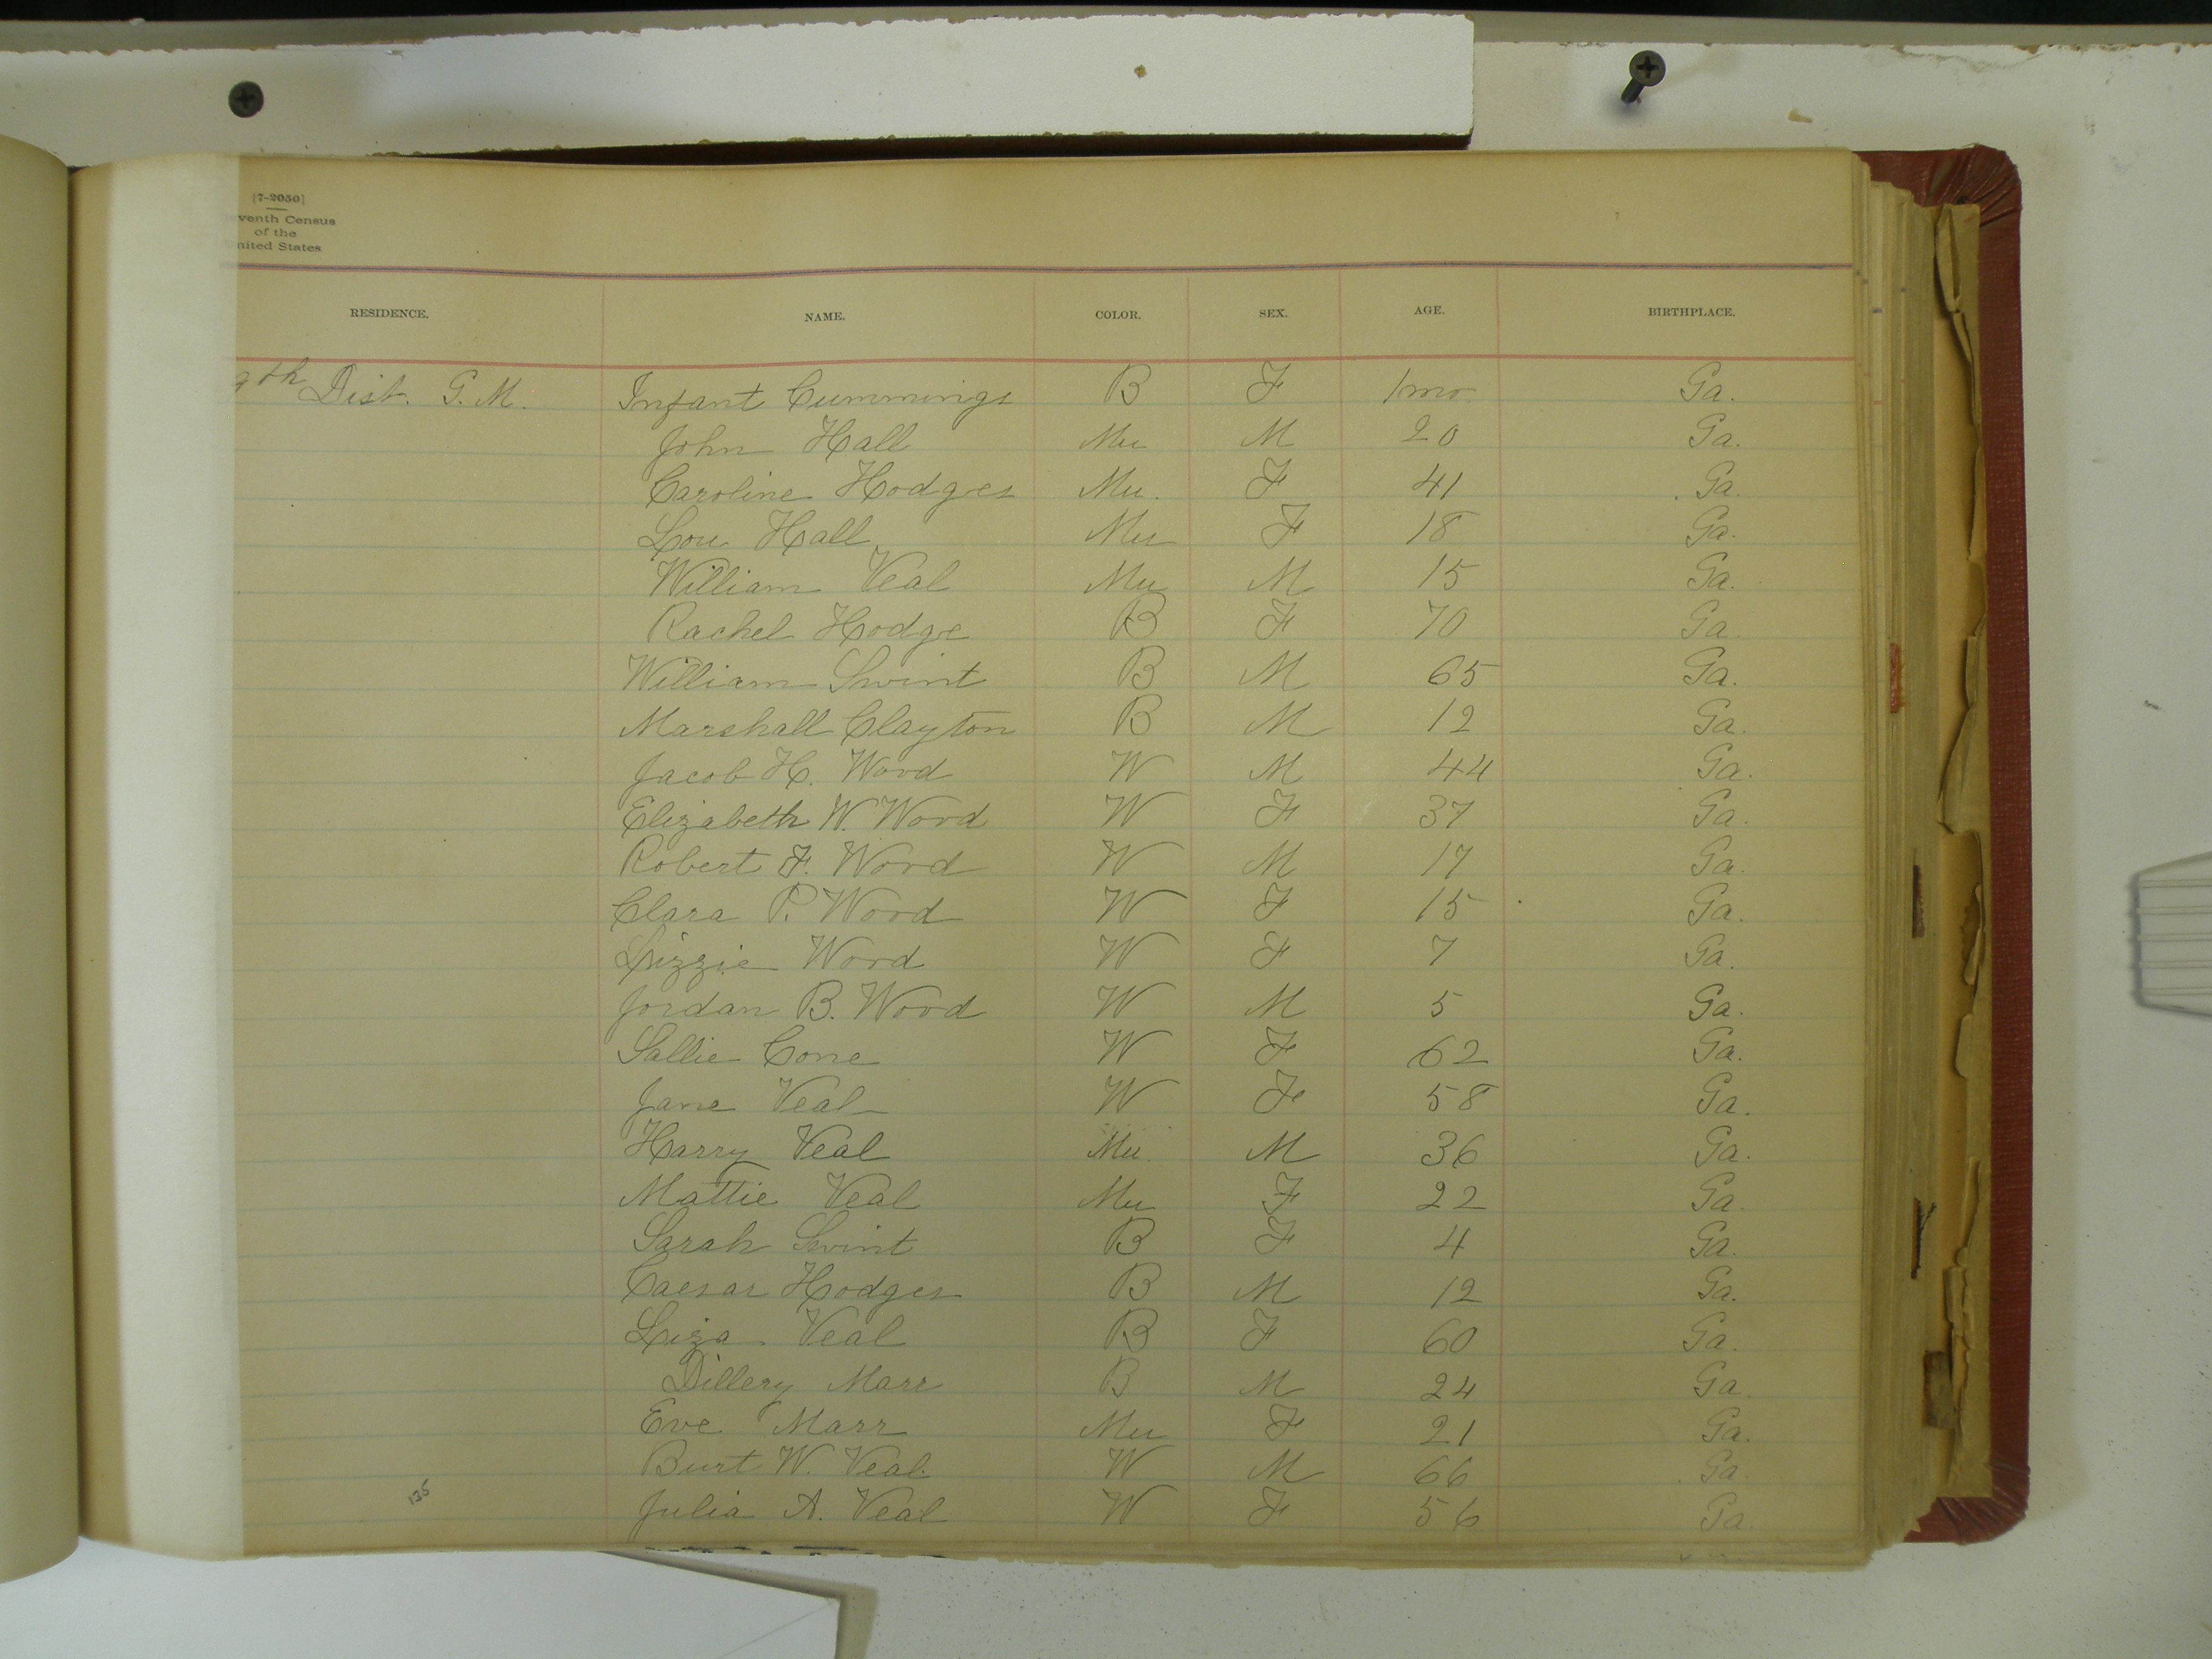 [7-2050]
venth Census
of the
nited States
RESIDENCE. NAME. COLOR. SEX. AGE. BIRTHPLACE.
9th Dist. G. M. Infant Cummings B F 1mo. Ga.
John Hall Mu M 20 Ga.
Caroline Hodges Mu. F 41 Ga.
Lou Hall Mu F 18 Ga.
William Veal Mu M 15 Ga.
Rachel Hodge B F 70 Ga.
William Swint B M 65 Ga.
Marshall Clayton B M 12 Ga.
Jacob H. Word W M 44 Ga.
Elizabeth W. Word W F 37 Ga.
Robert F. Word W M 17 Ga.
Clara P. Word W F 15 Ga.
Lizzie Word W F 7 Ga.
Jordan B. Word W M 5 Ga.
Sallie Cone W F 62 Ga.
Jane Veal W F 58 Ga.
Harry Veal Mu. M 36 Ga.
Mattie Veal Mu F 22 Ga.
Sarah Swint B F 4 Ga.
Caesar Hodges B M 12 Ga.
Liza Veal B F 60 Ga.
Dillery Marr B M 24 Ga.
Eve Marr Mu F 21 Ga.
Burt W. Veal. W M 66 Ga.
135 Julia A. Veal W F 56 Ga.